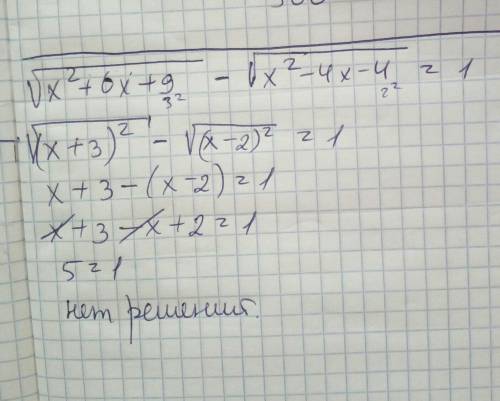 √(x²+6x+9) - √(x²-4x-4) = 1
3² 2²
√(x+3)² - √(x-2)² = 1
x+3-(x-2)=1
x+3-x+2=1
5=1
нет решений.